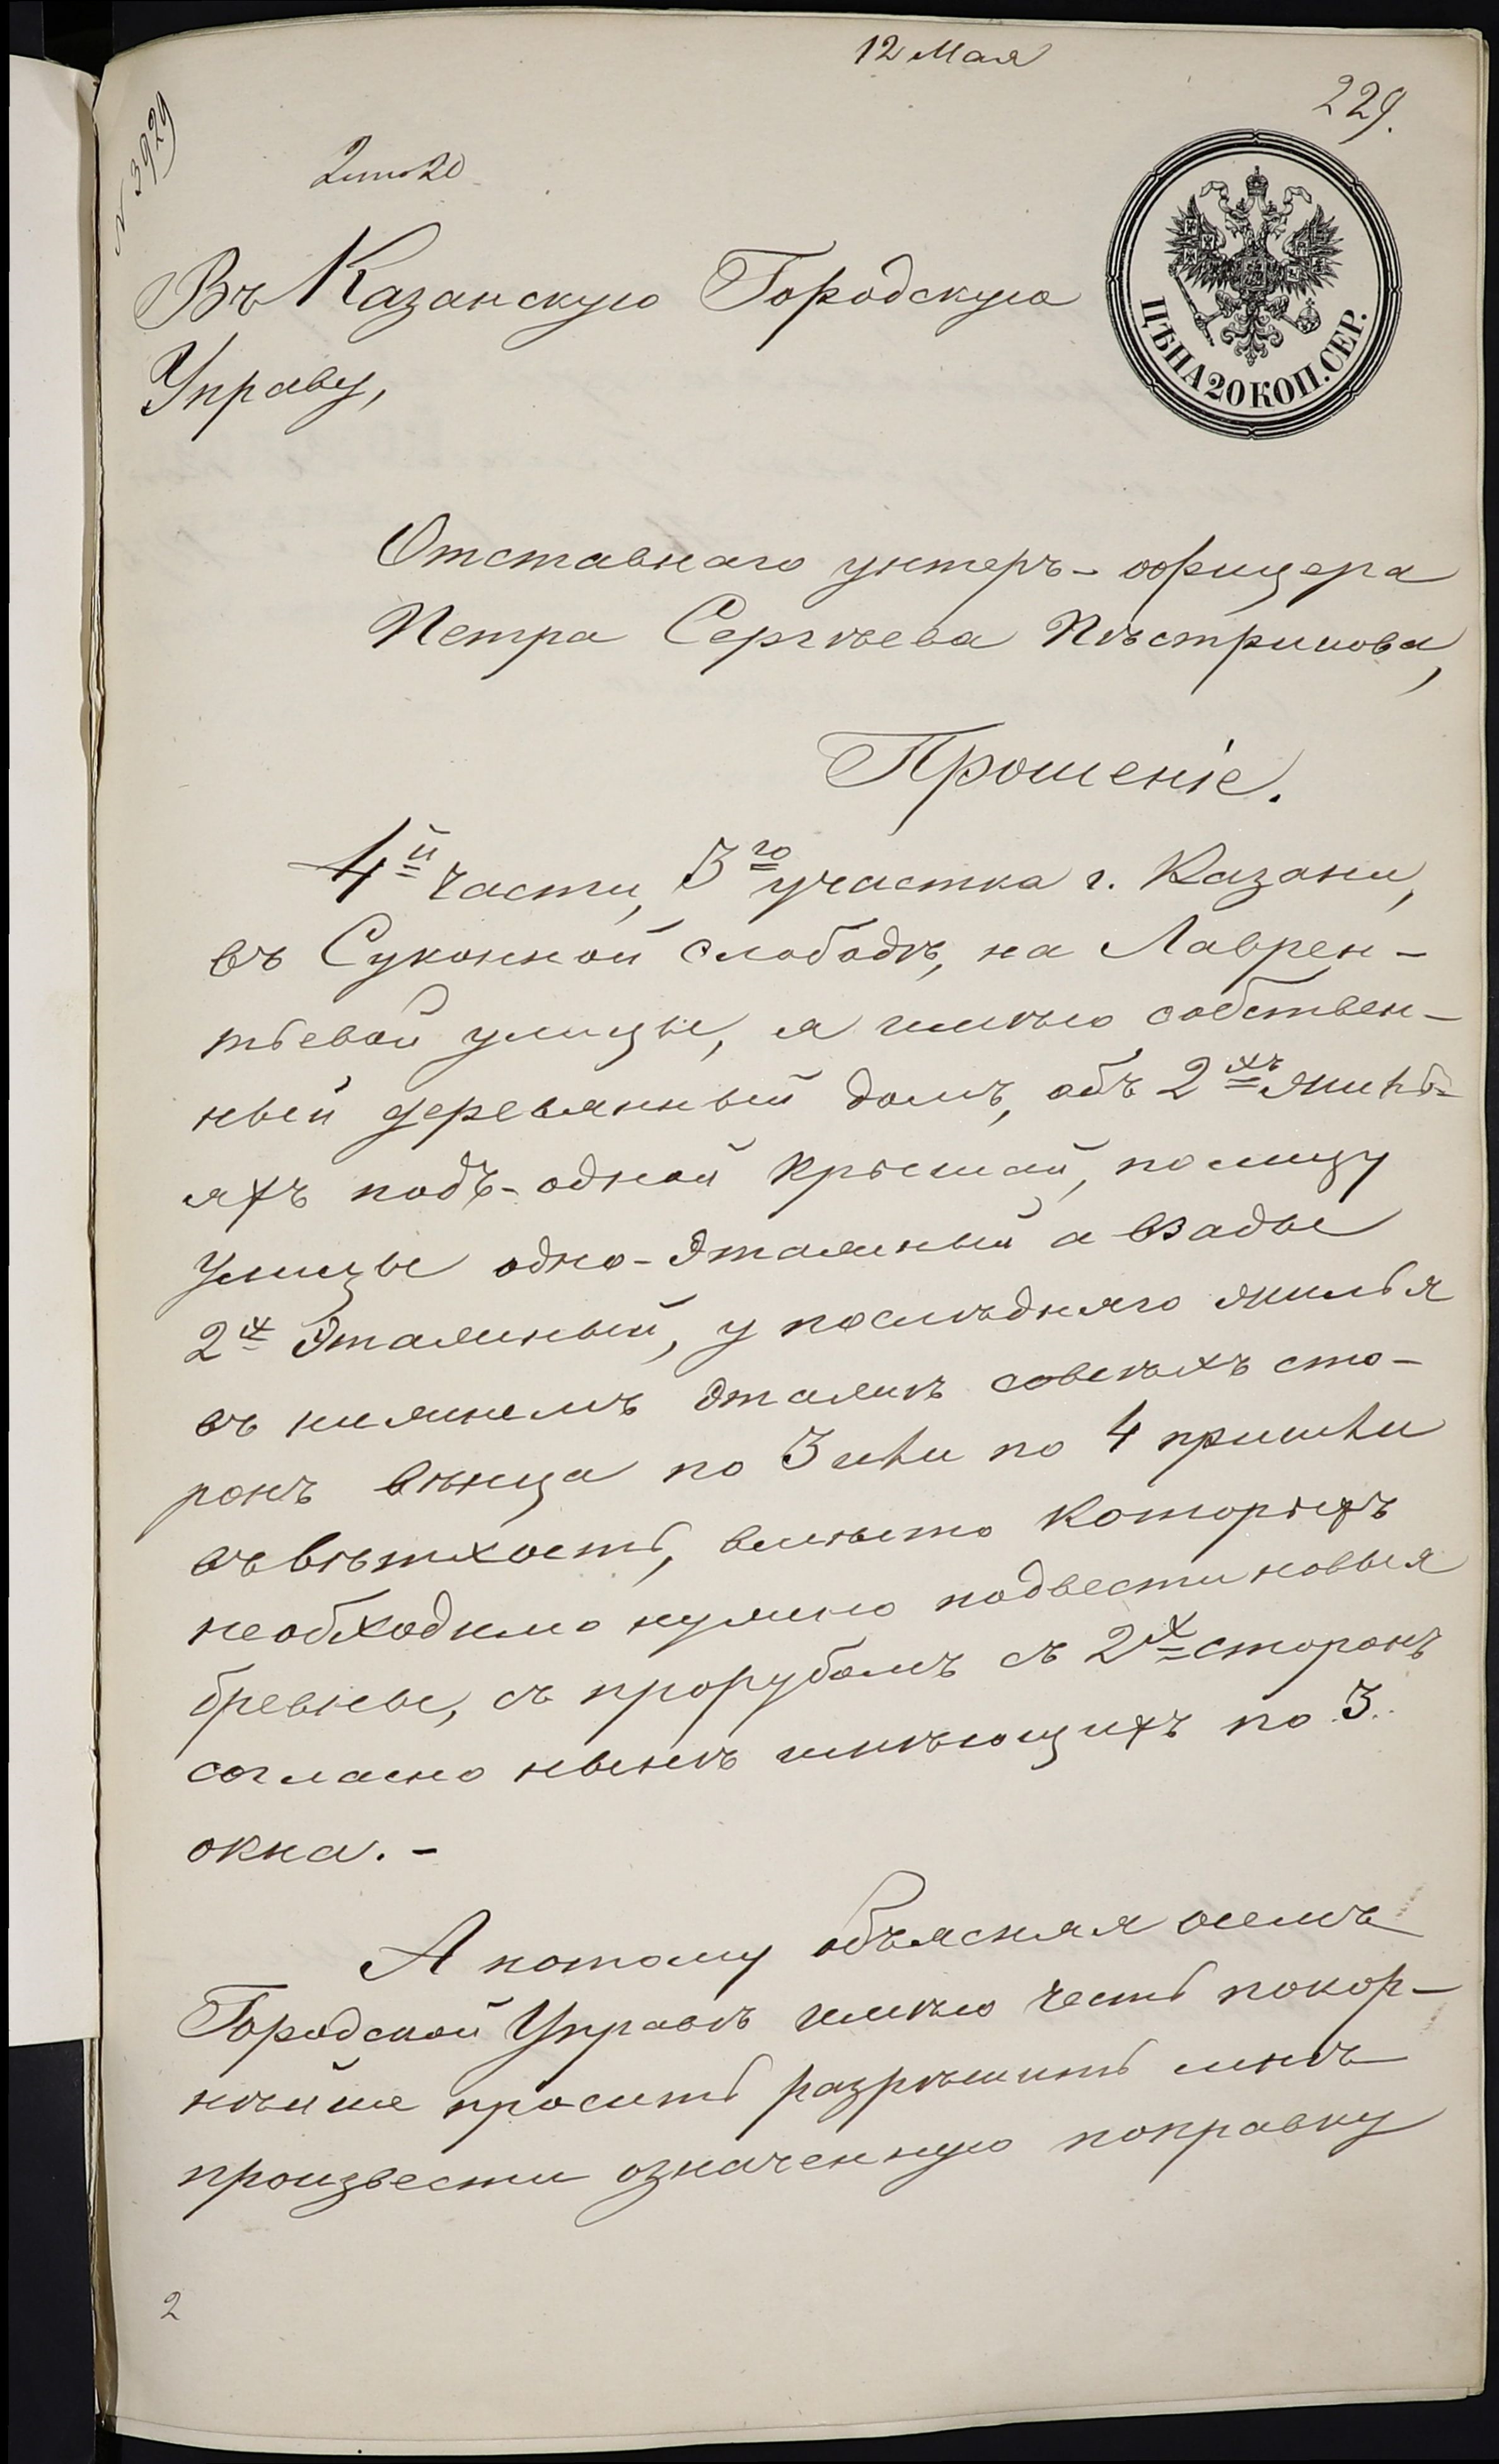 12 Мая
229.
N 3929
Въ Казанскую Городскую
Управу,
ЦѢНА 20 КОП. СЕР.
Отставнаго унтеръ-офицера
Петра Сергѣева Пѣстрикова,
Прошеніе.
4й части, 3го участка г. Казани,
въ Суконной слободѣ, на Лаврен-
тьевой улицы, я имѣю собствен-
ный деревянный домъ, объ 2хъ жилъ-
яхъ подъ-одной крышай, по лицу
Улицы одно-Этажный а взады
2х Этажный, у послѣдняго жилья
въ нижнемъ Этажѣ совсѣхъ сто-
ронъ вѣнца по 3 или по 4 пришли
въ вѣтхость, вмѣсто которыхъ
необходимо нужно подвести новыя
бревны, съ прорубомъ съ 2х сторонъ
согласно нынѣ имѣющихъ по 3.
окна. -
А потому объясняя осемъ
Городской Управѣ имѣю честь покор-
нѣйше просить разрѣшить мнѣ
произвести означенную поправку
2